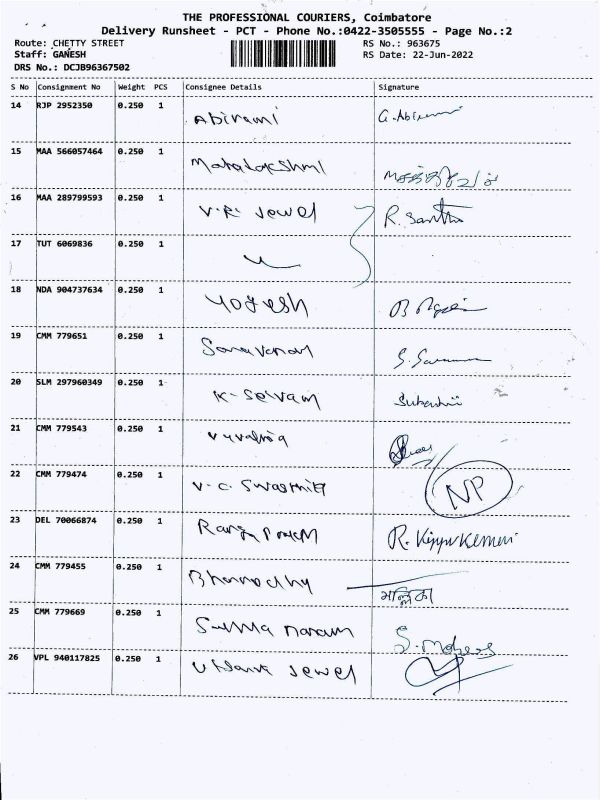 THE PROFESSIONAL COURIERS, Coimbatore
Delivery Runsheet - PCT - Phone No.:0422-3505555 - Page No.:2
Route: CHETTY STREET RS No.: 963675
Staff: GANESH RS Date: 22-Jun-2022
DRS No.: DCJB96367502
S No Consignment No Weight PCS Consignee Details Signature
14 RJP 2952350 0.250 1 Abirami G. Abirami
15 MAA 566057464 0.250 1 Mahalakshmi
16 MAA 289799593 0.250 1 V.R. Jewel R. Santhi
17 TUT 6069836 0.250 1
18 NDA 904737634 0.250 1 Yogesh
19 CMM 779651 0.250 1 Saravanan
20 SLM 297960349 0.250 1 K-Selvam
21 CMM 779543 0.250 1
22 CMM 779474 0.250 1 V.C. NP
23 DEL 70066874 0.250 1 R.
24 CMM 779455 0.250 1 মল্লিকা
25 CMM 779669 0.250 1
26 VPL 940117825 0.250 1 Jewel